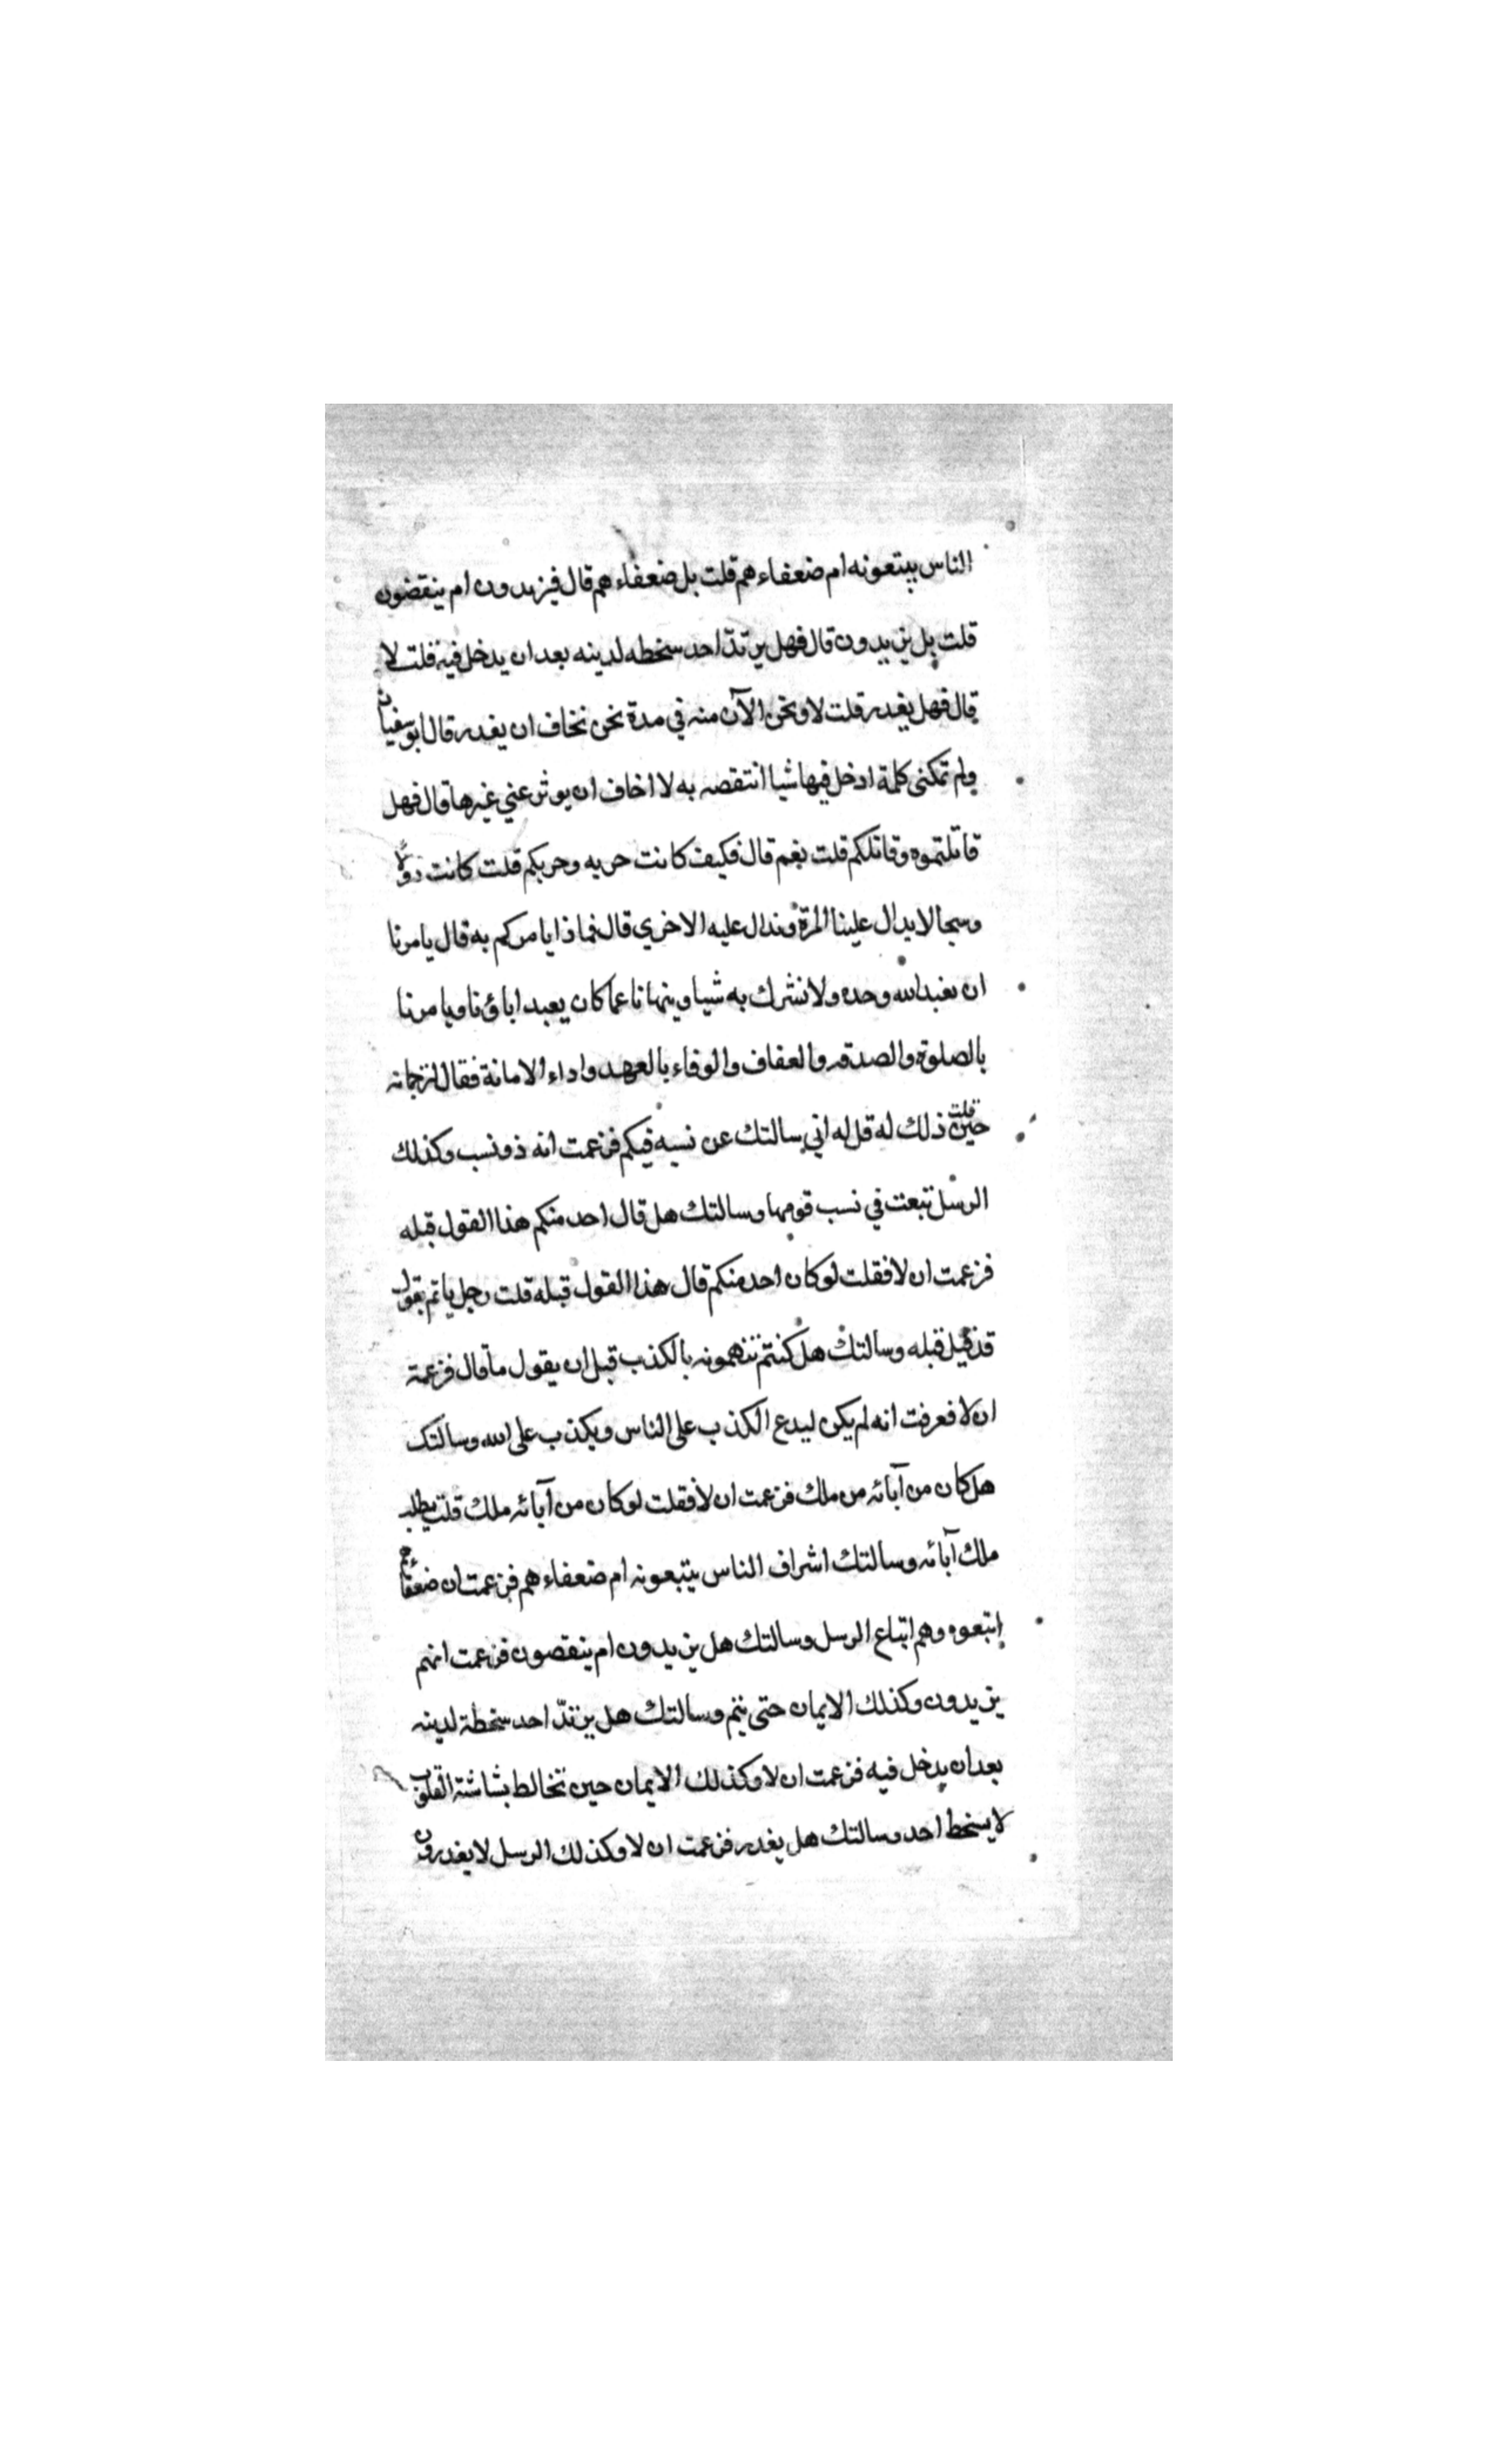 الناس يبتعونه ام ضعفاءهم قلت بل ضعفاءهم قال فيزيدون ام ينقضون
قلت بل يزيدون قال فهل يرتدّ احد سخطه لدينه بعد ان يدخل فيه قلت لا
قال فهل يغدر قلت لا ونحن الآن منه في مدة نحن نخاف ان يغدر قال ابو سفيان
ولم تمكنى كلمة ادخل فيها شيا انتقصه به لا اخاف ان يوثر عني غيرها قال فهل
قاتلتموه وقاتلكم قلت نعم قال فكيف كانت حربه وحربكم قلت كانت دولًا
وسجالا يدال علينا المرة وندال عليه الاخري قال فماذا يامركم به قال يامرنا
ان نعبد الله وحده ولا نشرك به شيا وينهانا عما كان يعبد اباؤنا ويامرنا
بالصلوة والصدقه والعفاف والوفاء بالعهد واداء الامانة فقال لترجمانه
حين قلت ذلك له قل له اني سالتك عن نسبه فيكم فزعمت انه ذو نسب وكذلك
الرسل تبعت في نسب قومها وسالتك هل قال احد منكم هذا القول قبله
فزعمت ان لا فقلت لو كان احد منكم قال هذا القول قبله قلت رجل ياتم بقول
قد قيل قبله وسالتك هل كنتم تتهمونه بالكذب قبل ان يقول ما قال فزعمة
ان لا فعرفت انه لم يكن ليدع الكذب على الناس ويكذب على الله وسالتك
هل كان من آبائه من ملك فزعمت ان لا فقلت لو كان من آبائه ملك قلت يطلب
ملك آبائه وسالتك اشراف الناس يتبعونه ام ضعفاءهم فزعمت ان ضعفاءهم
اتبعوه وهم اتباع الرسل وسالتك هل يزيدون ام ينقصون فزعمت انهم
يزيدون وكذلك الايمان حتى يتم وسالتك هل يرتدّ احد سخطة لدينه
بعد ان يدخل فيه فزعمت ان لا وكذلك الايمان حين تخالط بشاشته القلوب
لا يسخط احد وسالتك هل يغدر فزعمت ان لا وكذلك الرسل لا يغدرون